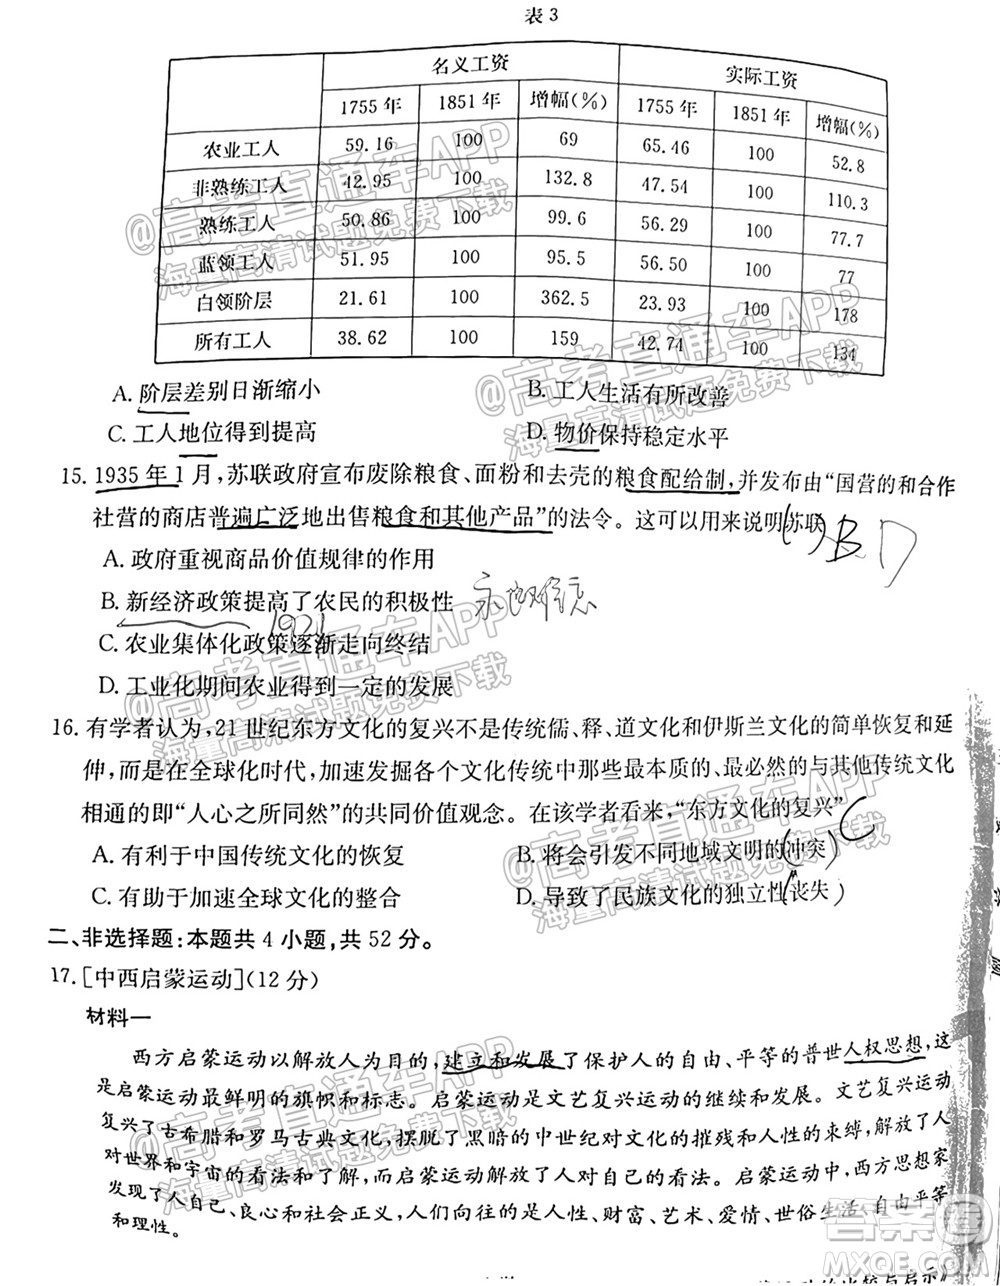 表 3
名义工资 实际工资
1755 年 1851 年 增幅(%) 1755 年 1851 年 增幅(%)
农业工人 59.16 100 69 65.46 100 52.8
非熟练工人 42.95 100 132.8 47.54 100 110.3
熟练工人 50.86 100 99.6 56.29 100 77.7
蓝领工人 51.95 100 95.5 56.50 100 77
白领阶层 21.61 100 362.5 23.93 100 178
所有工人 38.62 100 159 42.74 100 134
A. 阶层差别日渐缩小 B. 工人生活有所改善
C. 工人地位得到提高 D. 物价保持稳定水平
15. 1935 年 1 月，苏联政府宣布废除粮食、面粉和去壳的粮食配给制，并发布由“国营的和合作
社营的商店普遍广泛地出售粮食和其他产品”的法令。这可以用来说明苏联( )
B D
A. 政府重视商品价值规律的作用
B. 新经济政策提高了农民的积极性
1921
C. 农业集体化政策逐渐走向终结
D. 工业化期间农业得到一定的发展
16. 有学者认为，21 世纪东方文化的复兴不是传统儒、释、道文化和伊斯兰文化的简单恢复和延
伸，而是在全球化时代，加速发掘各个文化传统中那些最本质的、最必然的与其他传统文化
相通的即“人心之所同然”的共同价值观念。在该学者看来，“东方文化的复兴”( ) C
A. 有利于中国传统文化的恢复 B. 将会引发不同地域文明的冲突
C. 有助于加速全球文化的整合 D. 导致了民族文化的独立性丧失
二、非选择题：本题共 4 小题，共 52 分。
17. [中西启蒙运动](12 分)
材料一
西方启蒙运动以解放人为目的，建立和发展了保护人的自由、平等的普世人权思想，这
是启蒙运动最鲜明的旗帜和标志。启蒙运动是文艺复兴运动的继续和发展。文艺复兴运动
复兴了古希腊和罗马古典文化，摆脱了黑暗的中世纪对文化的摧残和人性的束缚，解放了人
对世界和宇宙的看法和了解，而启蒙运动解放了人对自己的看法。启蒙运动中，西方思想家
发现了人自己、良心和社会正义，人们向往的是人性、财富、艺术、爱情、世俗生活、自由平等
和理性。
@高考直通车APP
海量高清试题免费下载
@高考直通车APP
海量高清试题免费下载
@高考直通车APP
海量高清试题免费下载
@高考直通车APP
海量高清试题免费下载
@高考直通车APP
海量高清试题免费下载
答案圈
MXQE.COM